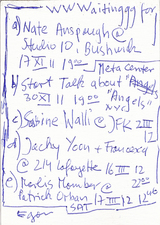 WWWaitinggg for
a) Nate Anspaugh @
Studio 10, Bushwick
17 XI 11 19 00
Meta Center
b) Start Talk about "Angels"
30 XI 11 19 00 "Angels"
NYC
c) Sabine Walli @ JFK 2 III
12
d) Jachy Yeon + Francesca
@ 214 Lafayette 16 III 12
e) Mombar @ 22 00
Patrick Orban 17 III 12
SAT
Egor